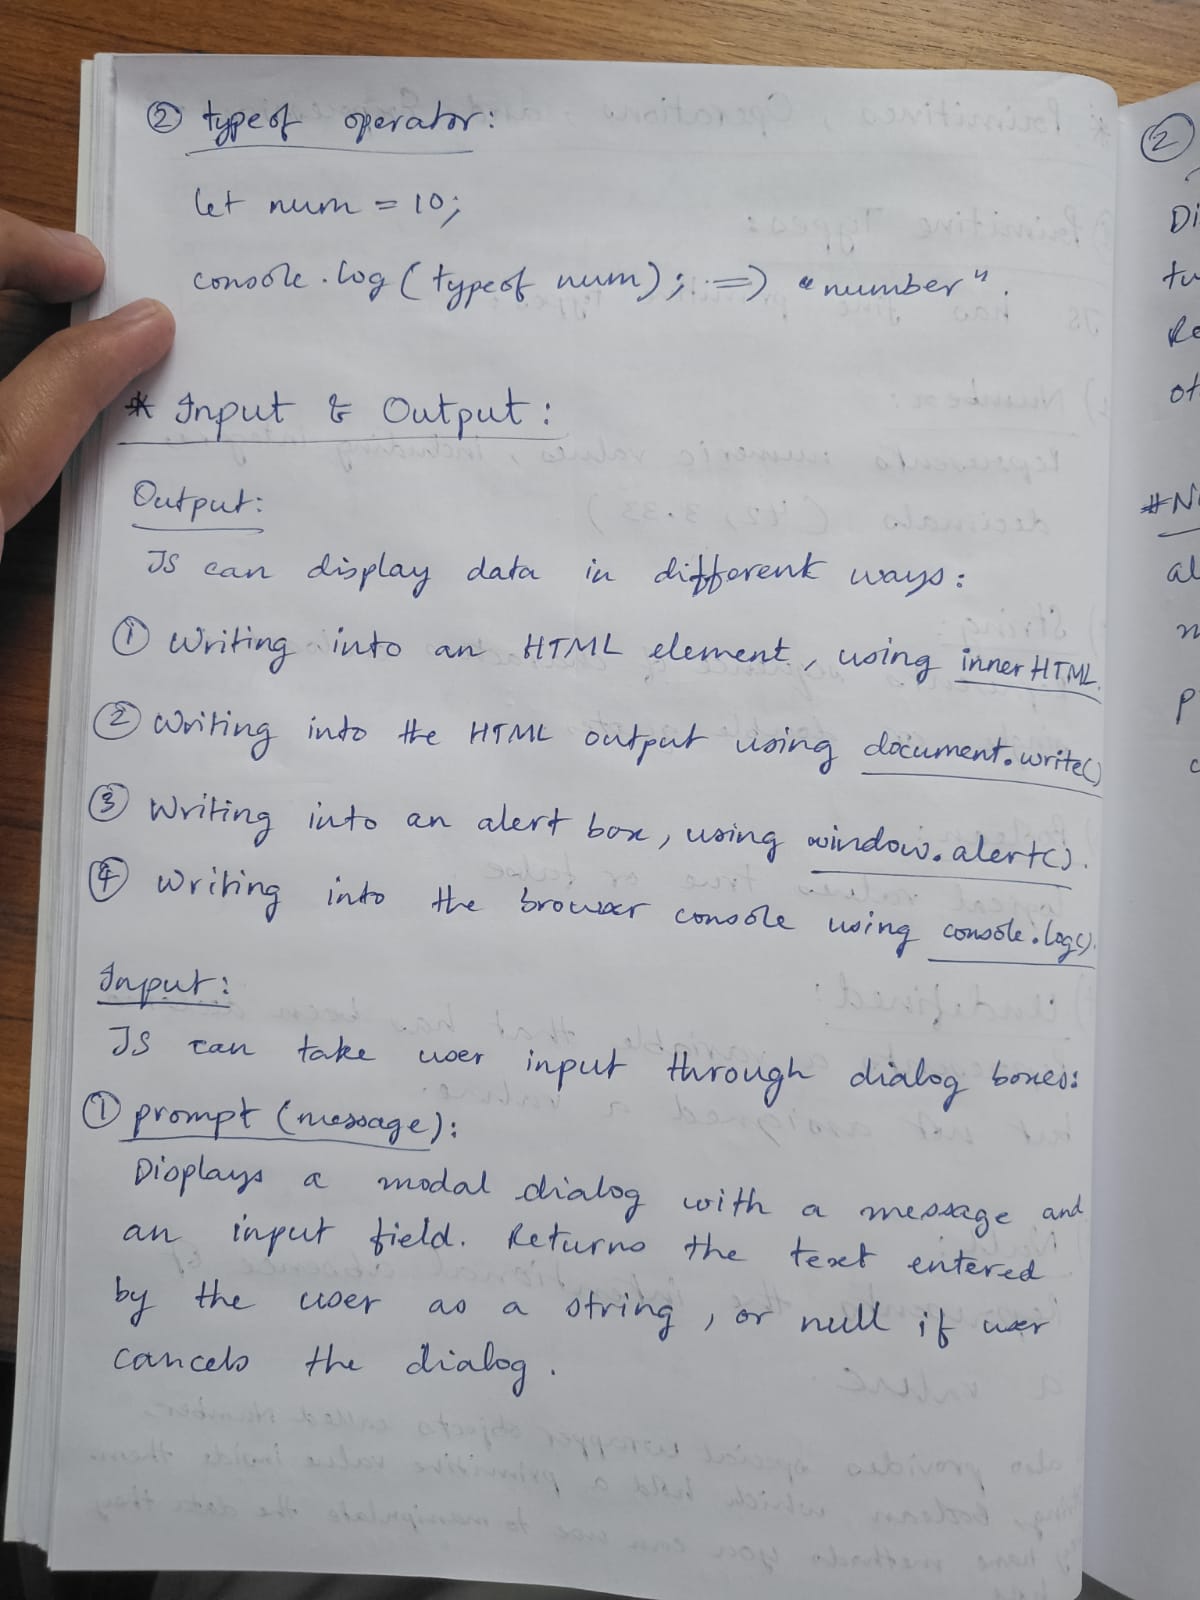 ② typeof operator:
let num = 10;
console.log(typeof num); => "number".
* Input & Output:
Output:
JS can display data in different ways:
① Writing into an HTML element, using innerHTML.
② Writing into the HTML output using document.write()
③ Writing into an alert box, using window.alert().
④ Writing into the browser console using console.log().
Input:
JS can take user input through dialog boxes:
① prompt (message):
Displays a modal dialog with a message and
an input field. Returns the text entered
by the user as a string, or null if user
cancels the dialog.
②
Di
tu
Re
ot
#N
al
m
p
c